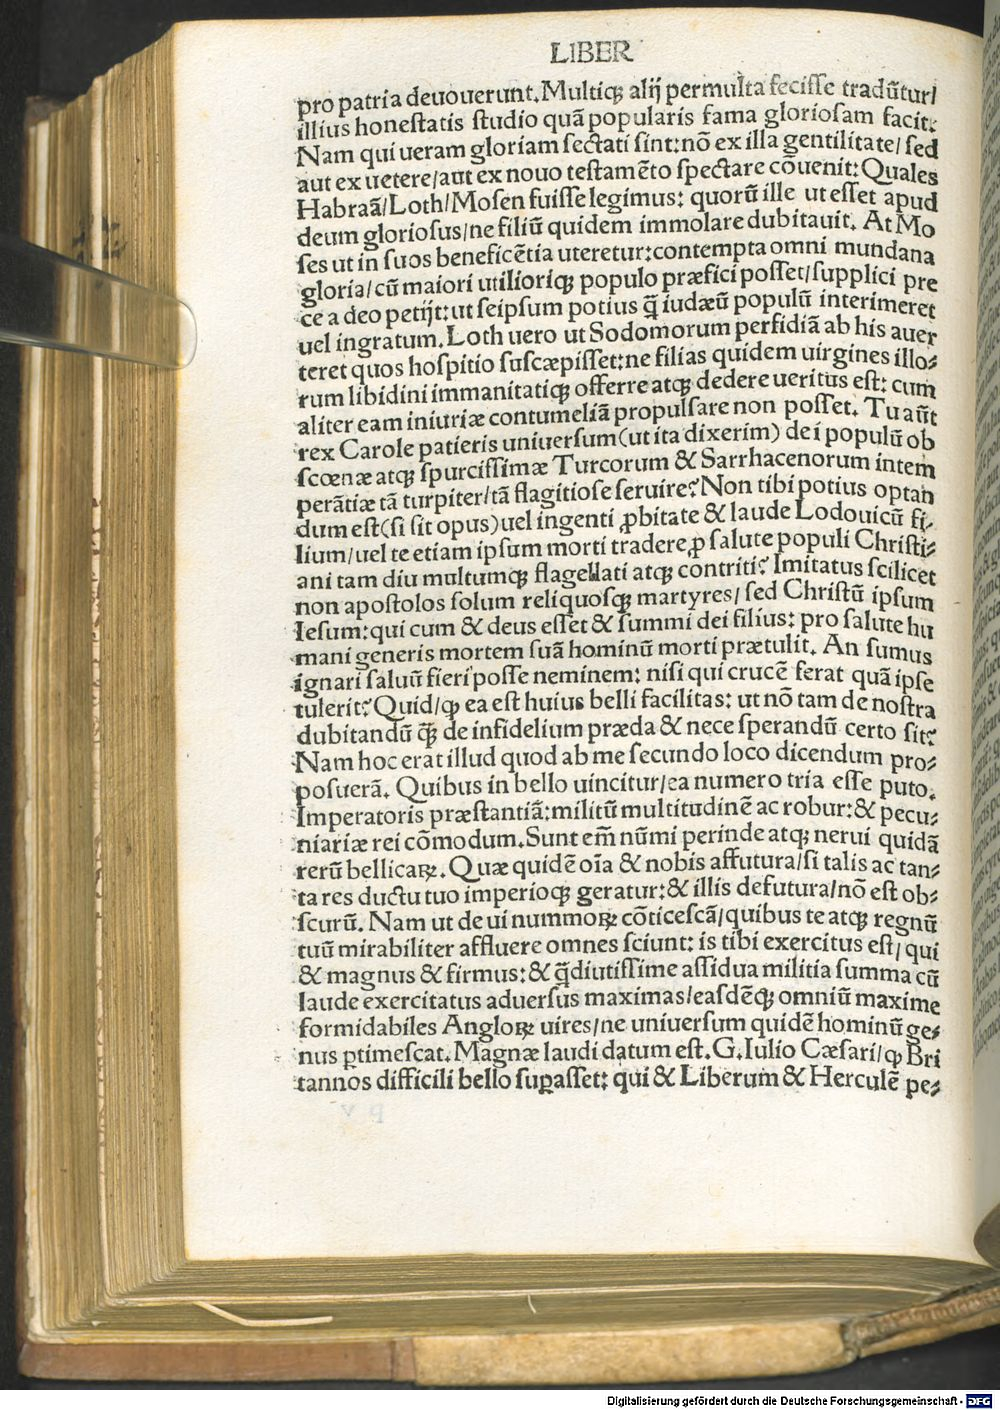 LIBER
pro patria deuouerunt. Multiqꝫ alij permulta feciſſe tradūtur/
illius honeſtatis ſtudio quā popularis fama glorioſam facit:
Nam qui ueram gloriam ſectati ſint: nō ex illa gentilitate/ ſed
aut ex uetere/aut ex nouo teſtamēto ſpectare cōuenit: Quales
Habraā/Loth/Moſen fuiſſe legimus: quorū ille ut eſſet apud
deum glorioſus/ne filiū quidem immolare dubitauit. At Mo
ſes ut in ſuos beneficētia uteretur: contempta omni mundana
gloria/cū maiori utilioriqꝫ populo præfici poſſet/ſupplici pre
ce a deo petijt: ut ſeipſum potius q̄ iudæū populū interimeret
uel ingratum. Loth uero ut Sodomorum perfidiā ab his auer
teret quos hoſpitio ſuſcæpiſſet: ne filias quidem uirgines illo⸗
rum libidini immanitatiqꝫ offerre atqꝫ dedere ueritus eſt: cum
aliter eam iniuriæ contumeliā propulſare non poſſet. Tu aūt
rex Carole patieris uniuerſum (ut ita dixerim) dei populū ob
ſcœnæ atqꝫ ſpurciſſimæ Turcorum & Sarrhacenorum intem
perātiæ tā turpiter/tā flagitioſe ſeruire? Non tibi potius optan
dum eſt (ſi ſit opus) uel ingenti ꝓbitate & laude Lodouicū fi⸗
lium/uel te etiam ipſum morti tradere ꝓ ſalute populi Chriſti⸗
ani tam diu multumqꝫ flagellati atqꝫ contriti? Imitatus ſcilicet
non apoſtolos ſolum reliquoſqꝫ martyres/ ſed Chriſtū ipſum
Ieſum: qui cum & deus eſſet & ſummi dei filius: pro ſalute hu
mani generis mortem ſuā hominū morti prætulit. An ſumus
ignari ſaluū fieri poſſe neminem: niſi qui crucē ferat quā ipſe
tulerit? Quid/ꝙ ea eſt huius belli facilitas: ut nō tam de noſtra
dubitandū q̄ꝫ de infidelium præda & nece ſperandū certo ſit?
Nam hoc erat illud quod ab me ſecundo loco dicendum pro⸗
poſuerā. Quibus in bello uincitur/ea numero tria eſſe puto.
Imperatoris præſtantiā: militū multitudinē ac robur: & pecu⸗
niariæ rei cōmodum. Sunt em̄ nūmi perinde atqꝫ nerui quidā
rerū bellicaꝝ. Quæ quidē oīa & nobis affutura/ſi talis ac tan⸗
ta res ductu tuo imperioqꝫ geratur: & illis defutura/nō eſt ob⸗
ſcurū. Nam ut de ui nummoꝝ cōticeſcā/quibus te atqꝫ regnū
tuū mirabiliter affluere omnes ſciunt: is tibi exercitus eſt/ qui
& magnus & firmus: & q̄diutiſſime aſſidua militia ſumma cū
laude exercitatus aduerſus maximas/eaſdēqꝫ omniū maxime
formidabiles Angloꝝ uires/ne uniuerſum quidē hominū ge⸗
nus ꝑtimeſcat. Magnæ laudi datum eſt. G. Iulio Cæſari/ꝙ Bri
tannos difficili bello ſuꝑaſſet: qui & Liberum & Herculē pe⸗
Digitalisierung gefördert durch die Deutsche Forschungsgemeinschaft - DFG